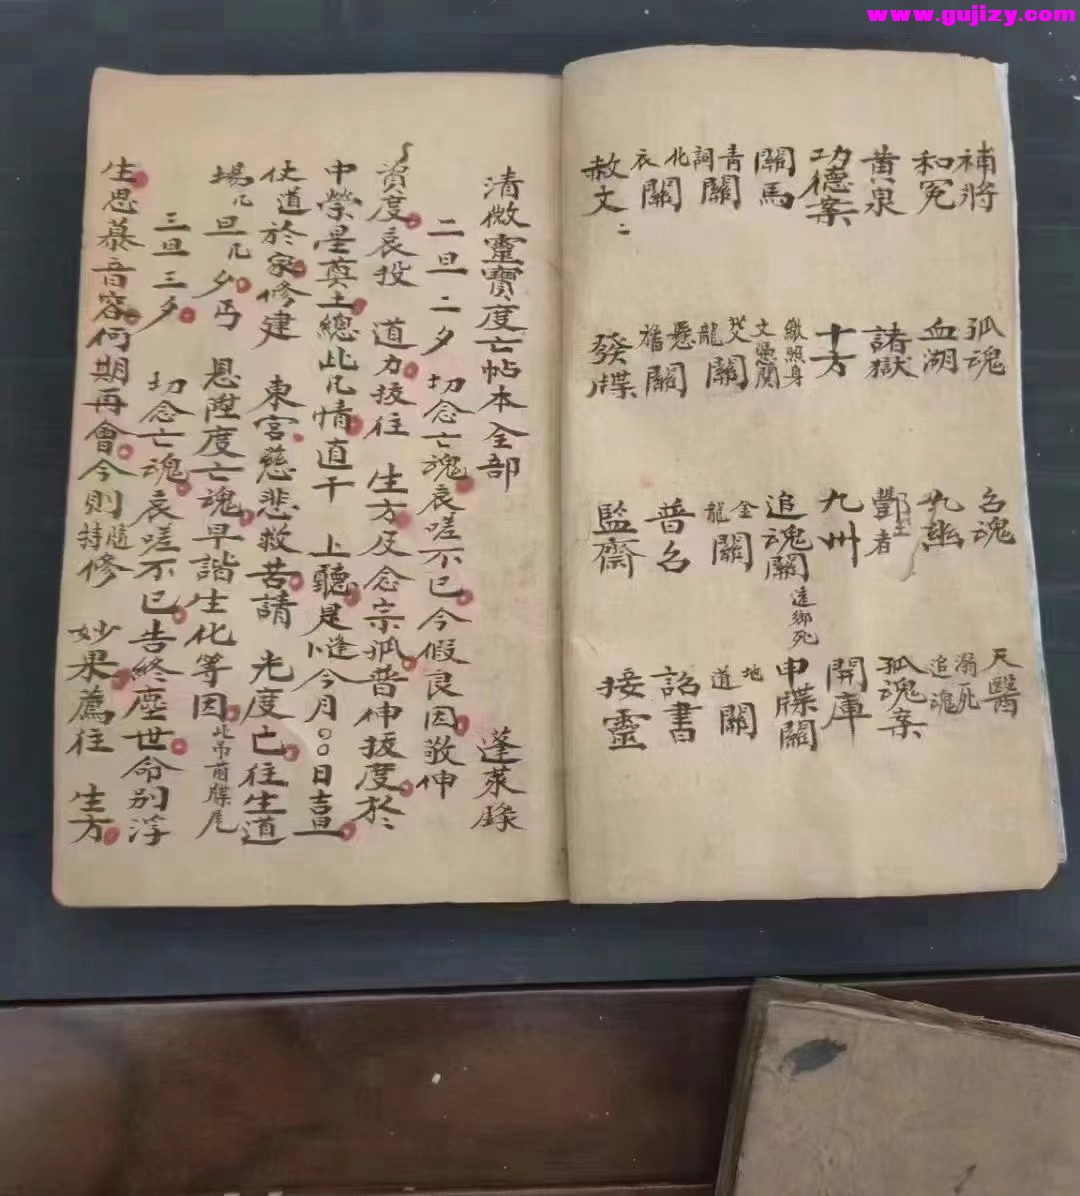 www.gujizy.com
補將 孤魂 召魂 天醫
和冤 血湖 九幽 溺死追魂
黃泉 諸獄 酆都王者 孤魂案
功德案 十方 九州 開庫
關馬 繳照身文憑關 追魂關 遠鄉死 申牒關
青詞關 龍關 金龍關 地道關
化衣關 懸旛關 普召 詔書
赦文 發牒 監齋 接靈
清微靈寶度亡帖本全部 蓬萊錄
二旦二夕 切念亡魂哀嗟不已今假良因敬伸
資度哀投 道力拔往 生方及念宗派普伸拔度於
中縈星奠土總此凡情直干 上聽是以逢今月〇〇日吉旦
仗道於家修建 東宮慈悲救苦請 光度亡往生道
場几旦几夕丐 恩陞度亡魂早諧生化等因此吊首牒尾
三旦三夕 切念亡魂哀嗟不已告終塵世命別浮
生思慕音容何期再會今則持隨修 妙果薦往 生方